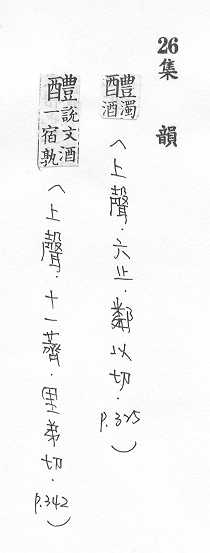 26集 韻
醴濁酒(上聲.六止.鄰以切.P.325)
醴說文酒一宿孰(上聲.十一薺.里弟切.P.342)